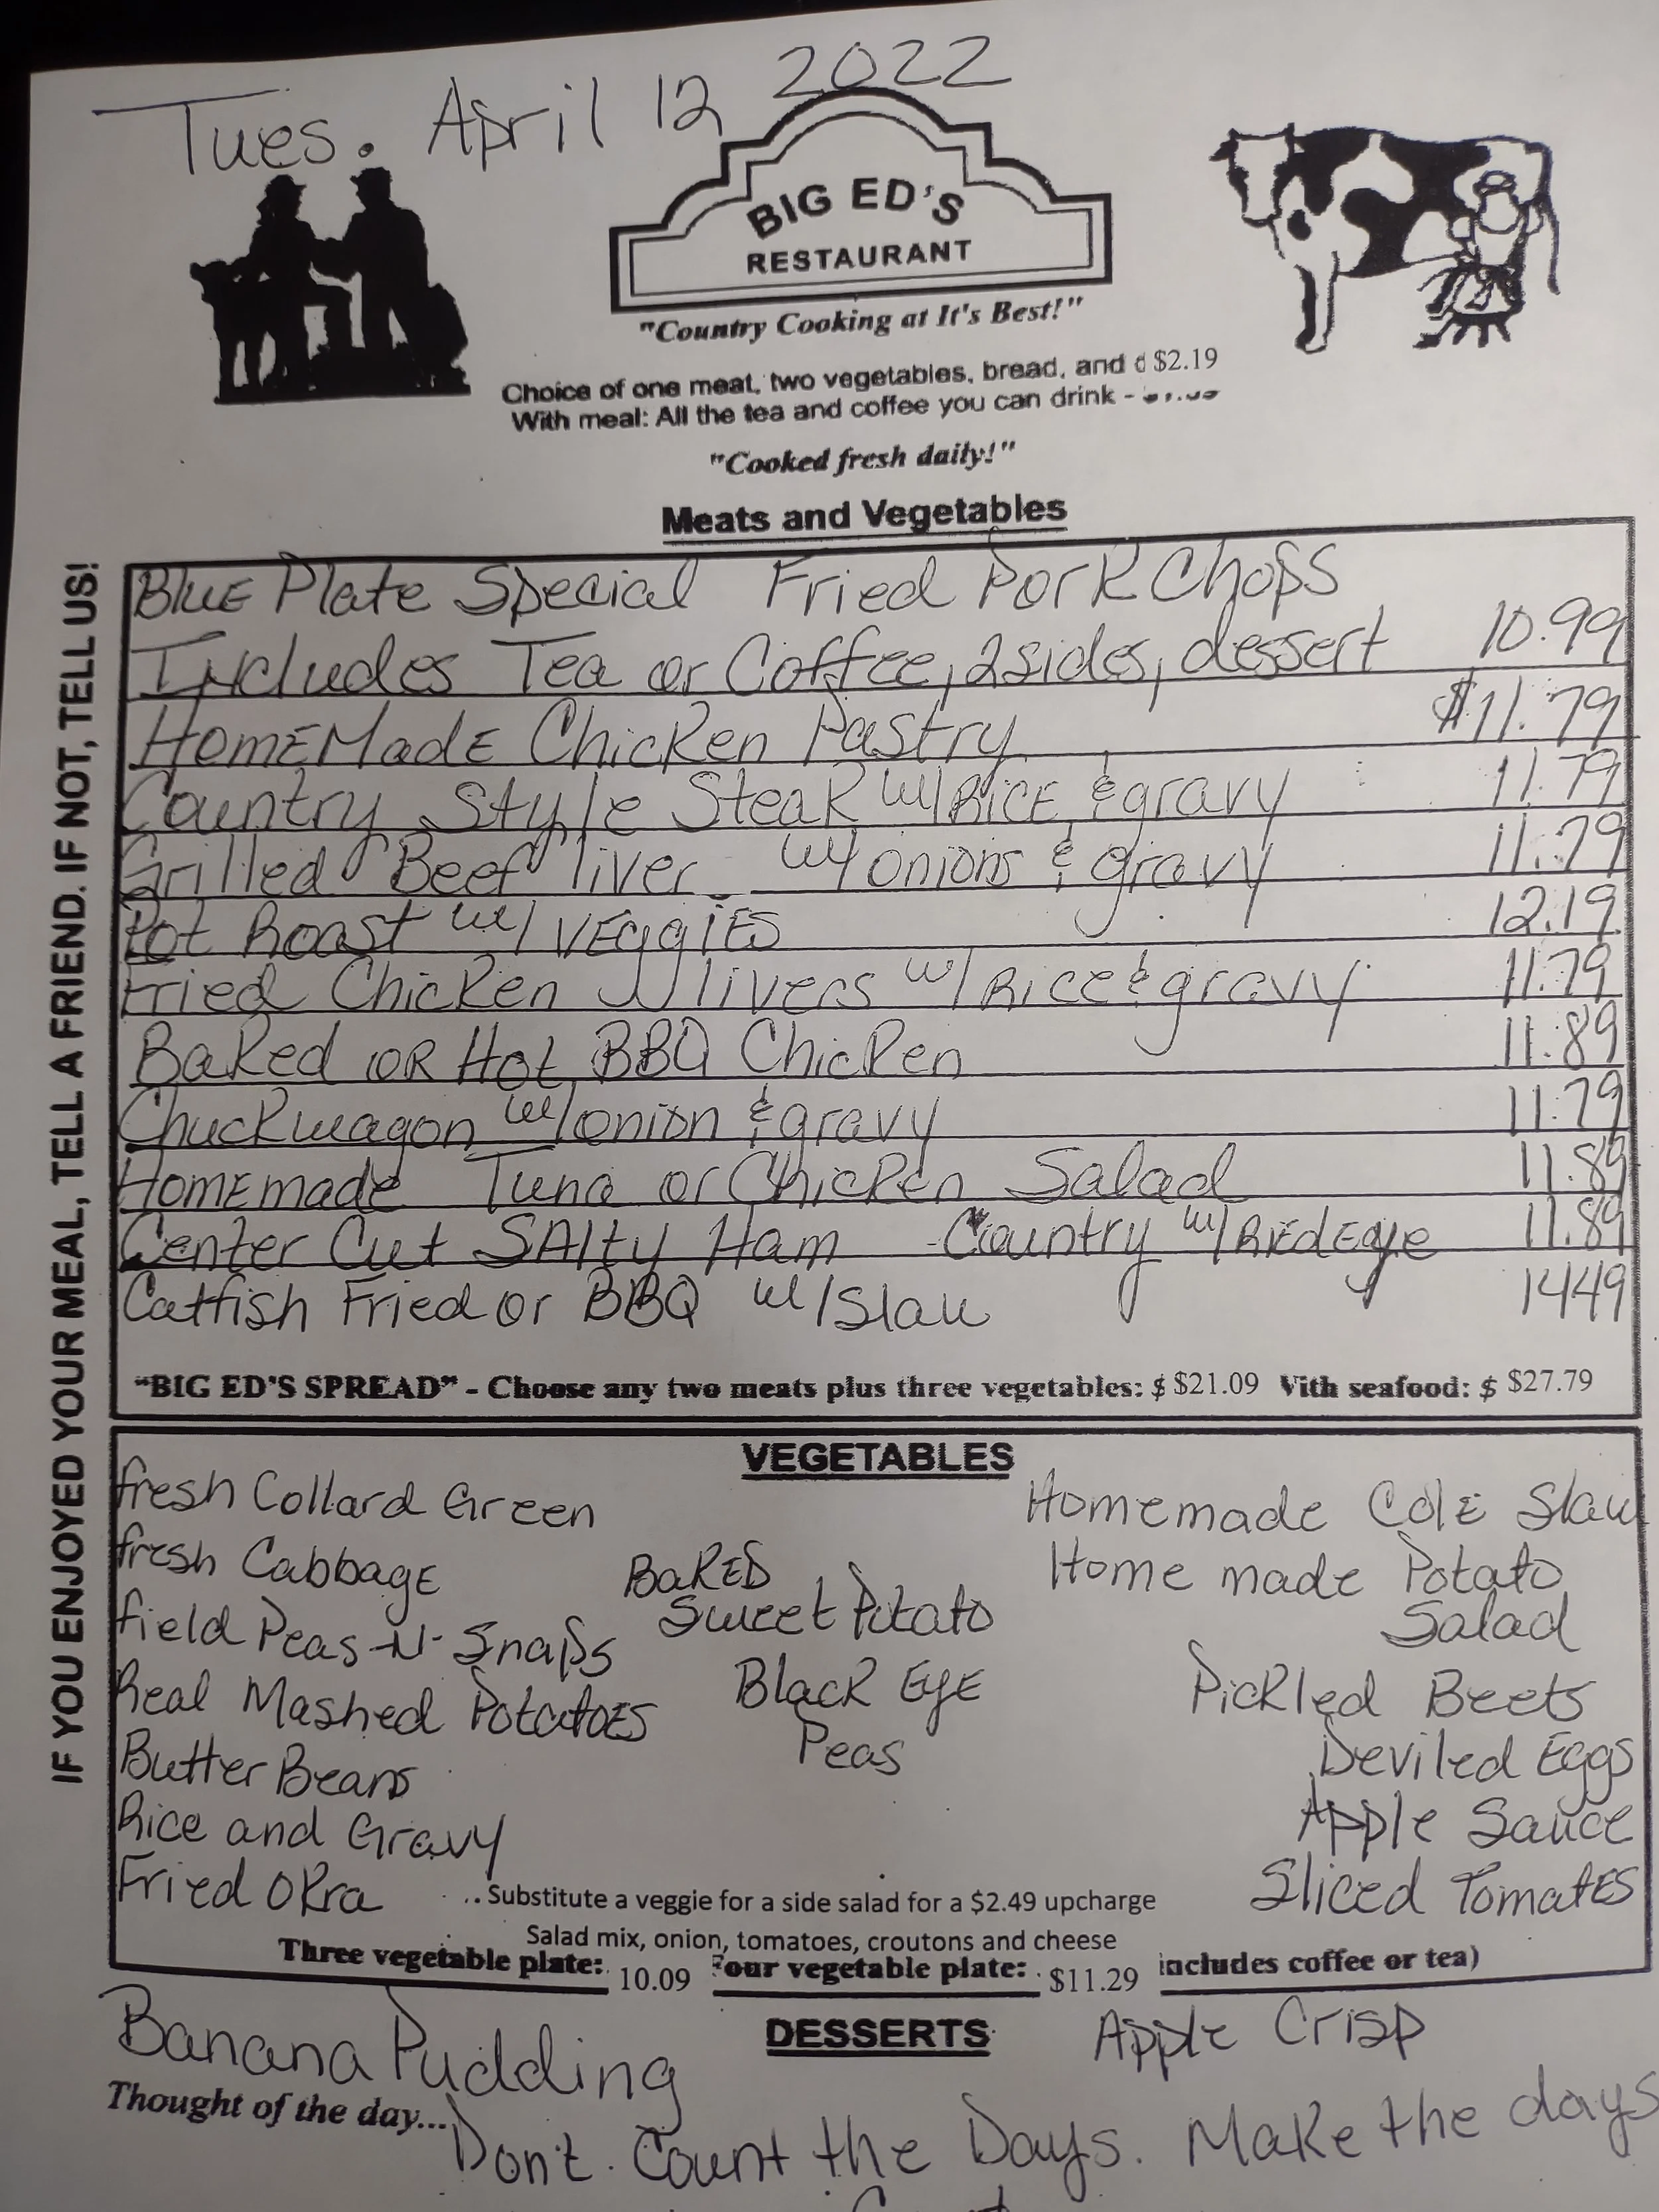 Tues. April 12 2022
BIG ED'S
RESTAURANT
"Country Cooking at It's Best!"
Choice of one meat, two vegetables, bread, and d $2.19
With meal: All the tea and coffee you can drink -
"Cooked fresh daily!"
Meats and Vegetables
IF YOU ENJOYED YOUR MEAL, TELL A FRIEND. IF NOT, TELL US!
BluE Plate Special Fried Pork Chops
Includes Tea or Coffee, 2 sides, dessert 10.99
HomEMadE Chicken Pastry $11.79
Country Style Steak w/RicE & gravy 11.79
Grilled Beef liver w/ onions & gravy 11.79
Pot Roast w/ VEggiES 12.19
Fried Chicken livers w/ Rice & gravy 11.79
Baked OR Hot BBQ Chicken 11.89
Chuckwagon w/ onion & gravy 11.79
HomEmade Tuna or Chicken Salad 11.89
Center Cut SAlty Ham Country w/ REdEye 11.89
Catfish Fried or BBQ w/Slaw 1449
"BIG ED'S SPREAD" - Choose any two meats plus three vegetables: $ $21.09 With seafood: $ $27.79
VEGETABLES
fresh Collard Green
fresh CabbagE
field Peas -N- Snaps
Real Mashed PotatoES
Butter Beans
Rice and Gravy
Fried Okra
BakED
Sweet Potato
Black EyE
Peas
Homemade ColE Slaw
Home made Potato
Salad
Pickled Beets
Deviled Eggs
Apple Sauce
Sliced TomatES
.. Substitute a veggie for a side salad for a $2.49 upcharge
Salad mix, onion, tomatoes, croutons and cheese
Three vegetable plate: 10.09 Four vegetable plate: $11.29 includes coffee or tea)
DESSERTS
Banana Pudding
Apple Crisp
Thought of the day...
Don't Count the Days. Make the days